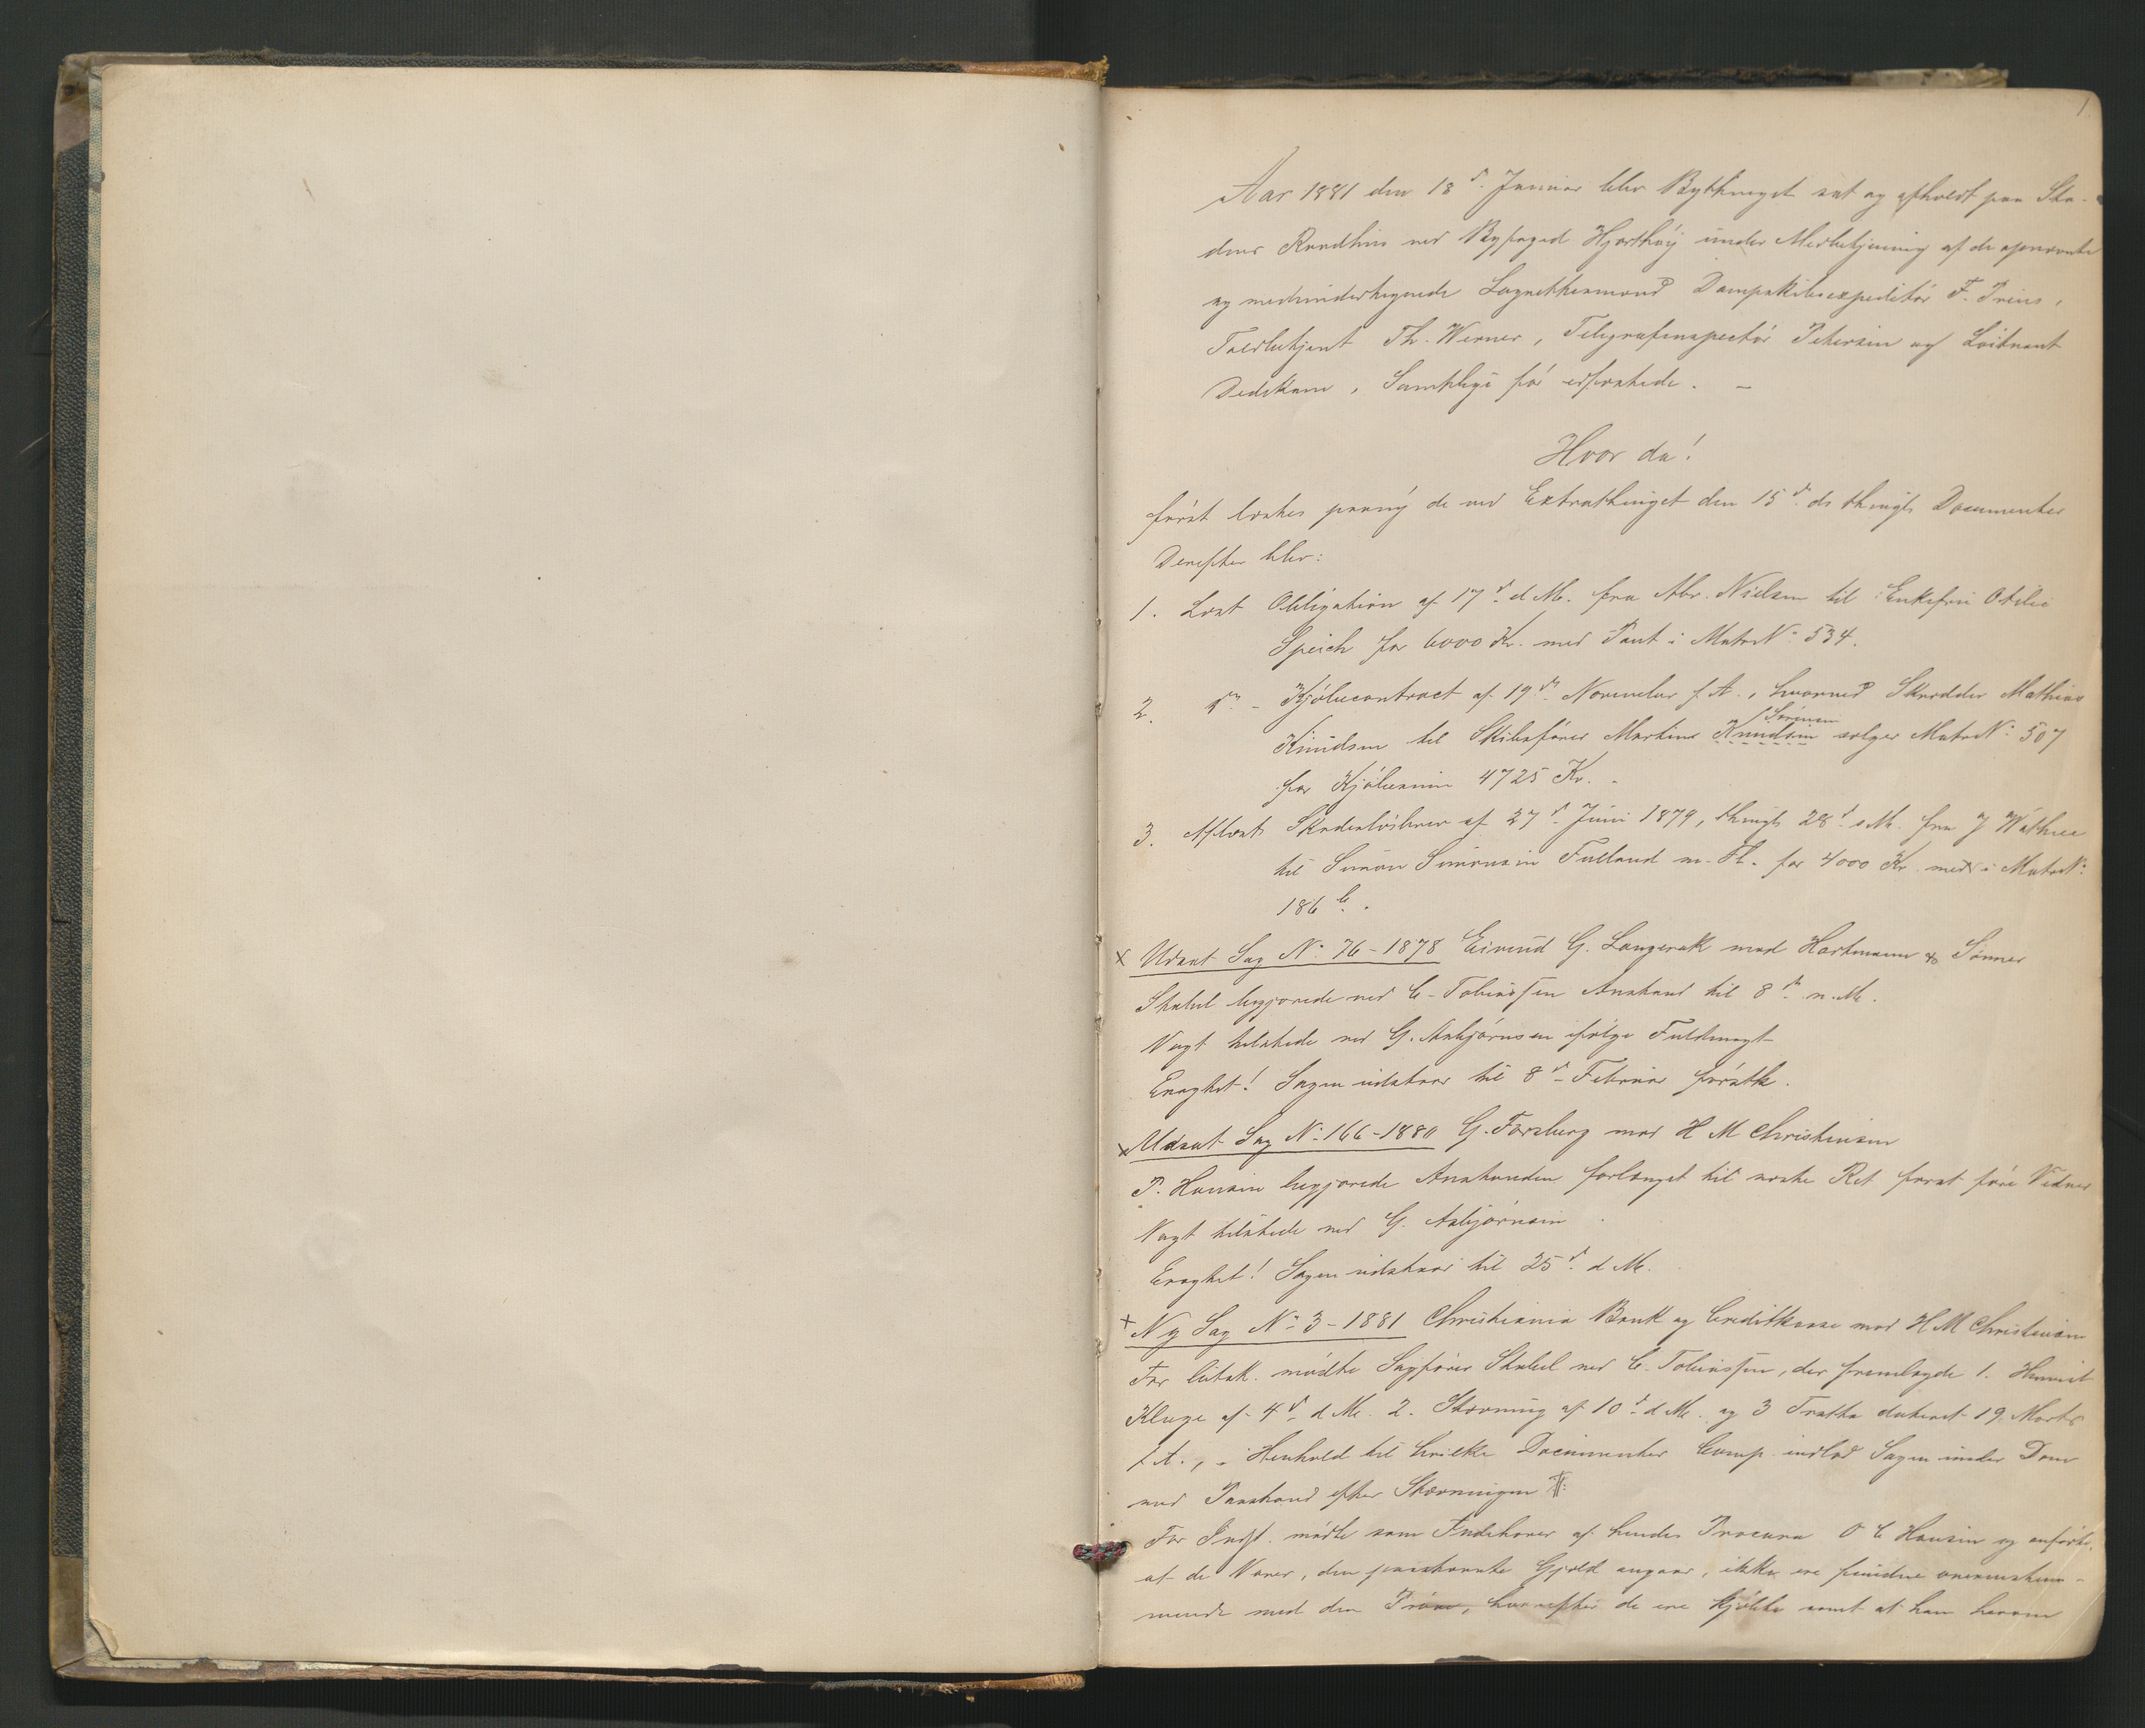 1
Aar 1881 den 18d. Januar blev Bythinget sat og afholdt paa Sta-
dens Raadhus ved Byfoged Hjorthøy under Medbetjening af de opnævnte
og medundertegnede Laugrettesmænd Dampskibsexpeditør F. Preus,
Toldbetjent Th. Werner, Telegrafinspectør Petersen og Løitnant
Dedekam, Samtlige før edfæstede. —
Hvor da!
først læstes paany de ved Extrathinget den 15d. ds thingl. Documenter
Derefter blev:
1. Læst Obligation af 17d. d. M. fra Abr. Nielsen til Enkefru Otilie
Speich for 6000 Kr. med Pant i MatrN: 534.
2. do - Kjøbecontract af 19de November f. A., hvorved Skrædder Mathias
Knudsen til Skibsfører Martins Knudsen Sørensen sælger MatrN: 507
for Kjøbesum 4725 Kr. -
3. Aflæst Skadesløsbrev af 27d. Juni 1879, thingl. 28d. s. M. fra J Wathne
til Simon Simonsen Fuland m. Fl. for 4000 Kr. med i MatrN:
186 b.
x Udsat Sag N: 76-1878 Eivind G. Langerak mod Hartmann & Sønner
Stabel begjærede ved C. Tobiassen Anstand til 8de n. M.
Vogt tilstede ved G. Asbjørnsen ifølge Fuldmagt
Eragtet! Sagen udstaar til 8d. Februar førstk.
x Udsat Sag N: 166-1880 G. Forsberg mod H M Christensen
P. Hansen begjærede Anstanden forlænget til næste Ret forat føre Vidner
Vogt tilstede ved G. Asbjørnsen
Eragtet! Sagen udstaar til 25d. d M.
+ Ny Sag No 3-1881 Christiania Bank og Creditkasse mod H M Christensen
For Citsk. mødte Sagfører Stabel ved C. Tobiassen, der fremlagde 1.
Klage af 4d. d M. 2. Stævning af 10d. d M. og 3 Tratte dateret 19 Marts
f. A., i Henhold til hvilke Documenter Comp. indlod Sagen under Dom
med Paastand efter Stævningen
For Indst. mødte som Indehaver af hendes Procura O C Hansen og anførte,
at de Varer, den paastævnte Gjæld angaar, ikke ere fundne overensstem-
mende med den Prøve, hvorefter de ere kjøbte samt at han herom